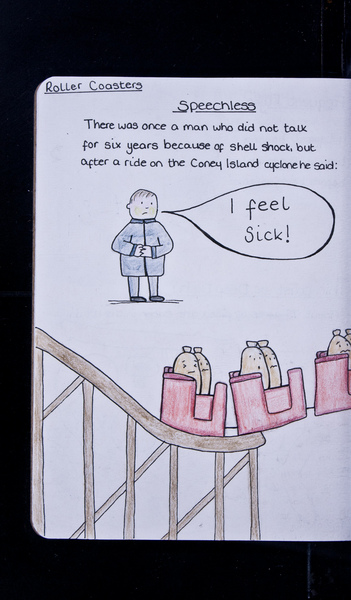 Roller Coasters
Speechless
There was once a man who did not talk
for six years because of shell shock, but
after a ride on the Coney Island cyclone he said:
I feel
Sick!